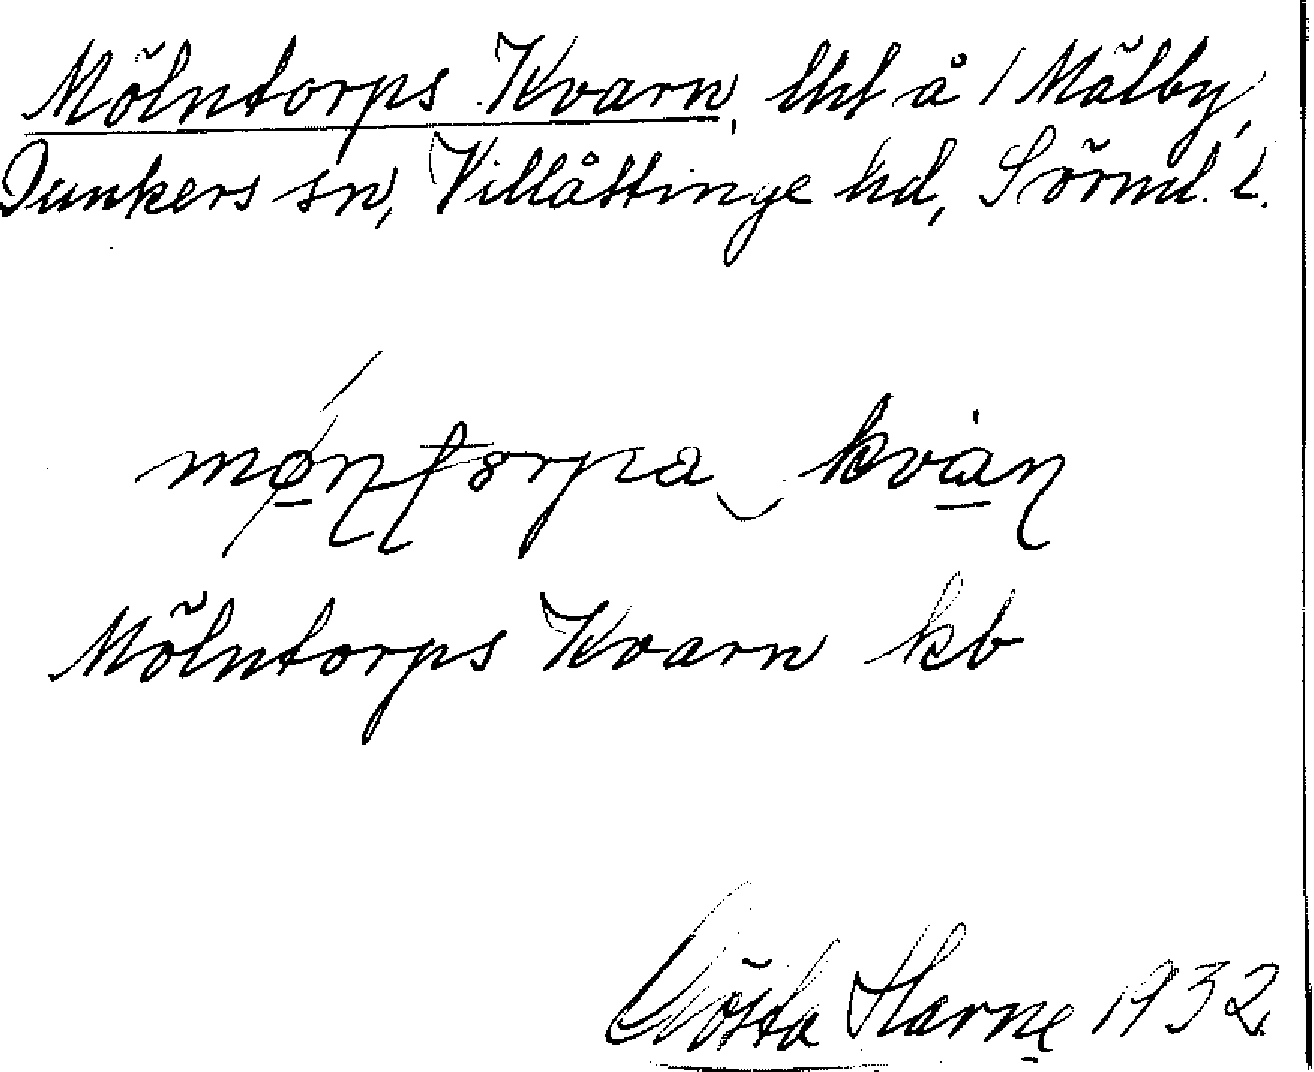 Mölntorps Kvarn, lht å 1 Mälby,
Dunkers sn, Villåttinge hd, Sörml. l.
kvạ̀ɳ
Mölntorps Kvarn kb
Gösta Harne 1932